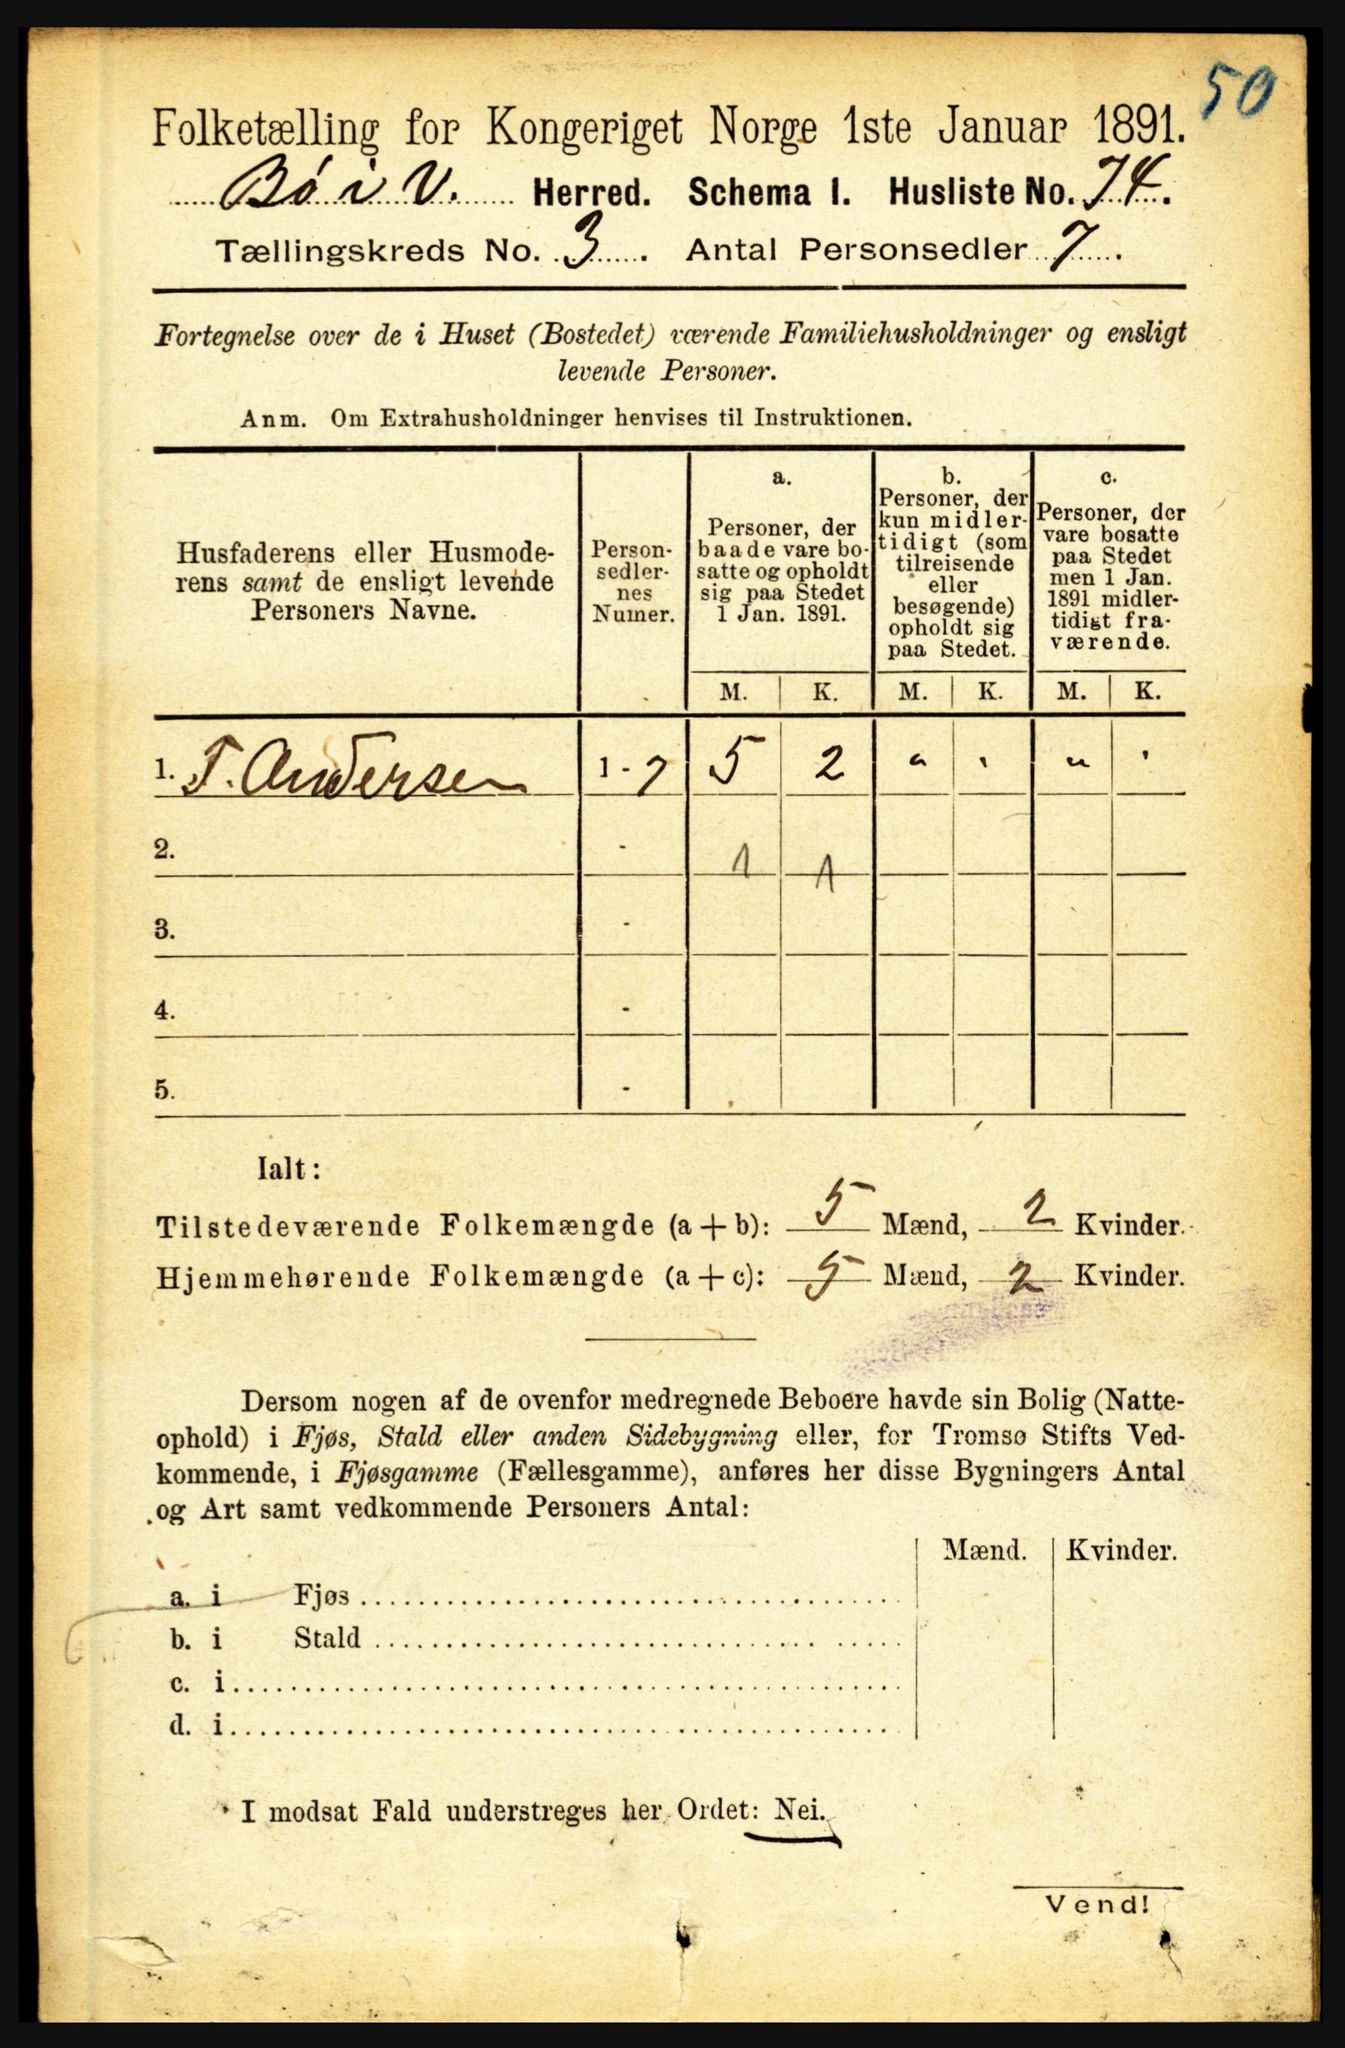 50
Folketælling for Kongeriget Norge 1ste Januar 1891.
Bø i V. Herred. Schema I. Husliste No. 74.
Tællingskreds No. 3. Antal Personsedler 7.
Fortegnelse over de i Huset (Bostedet) værende Familiehusholdninger og ensligt
levende Personer.
Anm. Om Extrahusholdninger henvises til Instruktionen.
Husfaderens eller Husmode-
rens samt de ensligt levende
Personers Navne.
Person-
sedler-
nes
Numer.
a.
Personer, der
baade vare bo-
satte og opholdt
sig paa Stedet
1 Jan. 1891.
b.
Personer, der
kun midler-
tidigt (som
tilreisende
eller
besøgende)
opholdt sig
paa Stedet.
c.
Personer, der
vare bosatte
paa Stedet
men 1 Jan.
1891 midler-
tidigt fra-
værende.
M. K. M. K. M. K.
1. T. Andersen 1 - 7 5 2 " " " "
2. - 1 1
3. -
4. -
5. -
Ialt:
Tilstedeværende Folkemængde (a + b): 5 Mænd, 2 Kvinder.
Hjemmehørende Folkemængde (a + c): 5 Mænd, 2 Kvinder.
Dersom nogen af de ovenfor medregnede Beboere havde sin Bolig (Natte-
ophold) i Fjøs, Stald eller anden Sidebygning eller, for Tromsø Stifts Ved-
kommende, i Fjøsgamme (Fællesgamme), anføres her disse Bygningers Antal
og Art samt vedkommende Personers Antal:
Mænd. Kvinder.
a. i Fjøs
b. i Stald
c. i
d. i
I modsat Fald understreges her Ordet: Nei.
Vend!